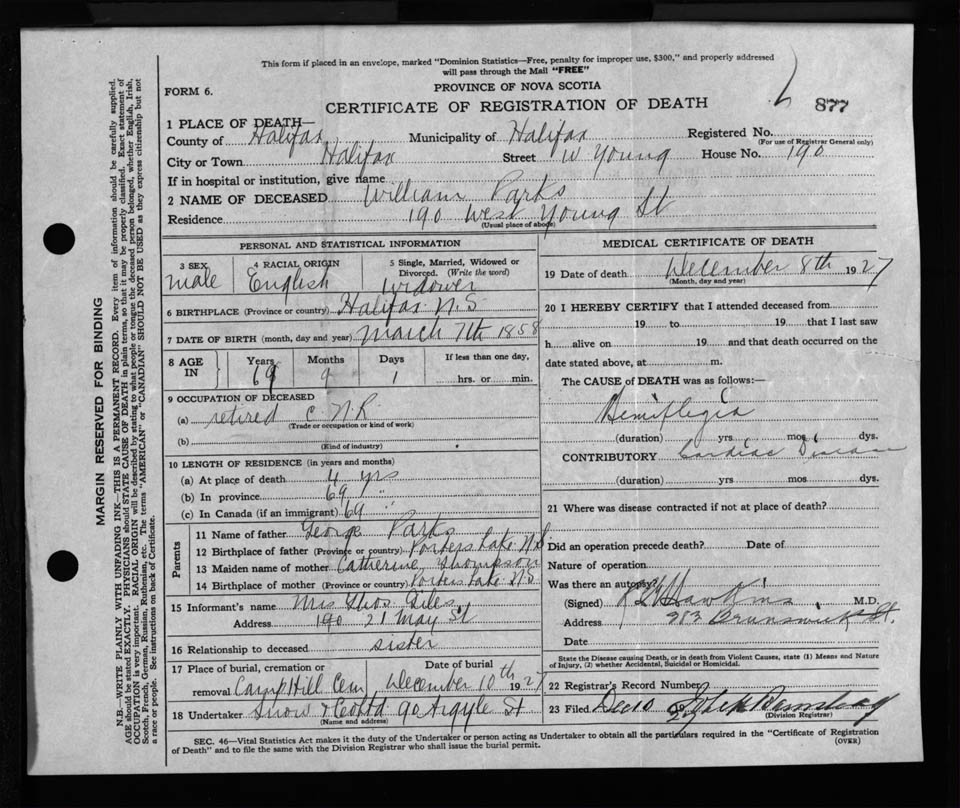 This form if placed in an envelope, marked "Dominion Statistics—Free, penalty for improper use, $300," and properly addressed
will pass through the Mail "FREE"
FORM 6.
PROVINCE OF NOVA SCOTIA
CERTIFICATE OF REGISTRATION OF DEATH
877
1 PLACE OF DEATH—
County of Halifax Municipality of Halifax Registered No.
(For use of Registrar General only)
City or Town Halifax Street W Young House No. 190
If in hospital or institution, give name
2 NAME OF DECEASED William Parks
Residence 190 West Young St
(Usual place of abode)
PERSONAL AND STATISTICAL INFORMATION
3 SEX male
4 RACIAL ORIGIN English
5 Single, Married, Widowed or Divorced. (Write the word) widower
6 BIRTHPLACE (Province or country) Halifax N.S
7 DATE OF BIRTH (month, day and year) March 7th 1858
8 AGE IN Years 69 Months 9 Days 1 If less than one day, hrs. or min.
9 OCCUPATION OF DECEASED
(a) retired C.N.R
(Trade or occupation or kind of work)
(b)
(Kind of industry)
10 LENGTH OF RESIDENCE (in years and months)
(a) At place of death 4 yrs
(b) In province 69 "
(c) In Canada (if an immigrant) 69 "
Parents
11 Name of father George Parks
12 Birthplace of father (Province or country) Porters Lake N.S
13 Maiden name of mother Catherine Thompson
14 Birthplace of mother (Province or country) Porters Lake N.S
15 Informant's name Mrs Thos Giles
Address 190 21 May St
16 Relationship to deceased sister
17 Place of burial, cremation or removal Camp Hill Cem
Date of burial December 10th 1927
18 Undertaker Snow & Co Ltd 90 Argyle St
(Name and address)
MEDICAL CERTIFICATE OF DEATH
19 Date of death December 8th 1927
(Month, day and year)
20 I HEREBY CERTIFY that I attended deceased from
19 to 19 that I last saw
h alive on 19 and that death occurred on the
date stated above, at m.
The CAUSE OF DEATH was as follows:—
Hemiplegia
(duration) yrs mos dys.
CONTRIBUTORY Cardiac Disease
(duration) yrs mos dys.
21 Where was disease contracted if not at place of death?
Did an operation precede death? Date of
Nature of operation
Was there an autopsy?
(Signed) Hawkins M.D.
Address 983 Brunswick St.
Date
State the Disease causing Death, or in death from Violent Causes, state (1) Means and Nature
of Injury, (2) whether Accidental, Suicidal or Homicidal.
22 Registrar's Record Number
23 Filed Dec 10 19
(Division Registrar)
SEC. 46—Vital Statistics Act makes it the duty of the Undertaker or person acting as Undertaker to obtain all the particulars required in the "Certificate of Registration
of Death" and to file the same with the Division Registrar who shall issue the burial permit.
(OVER)
MARGIN RESERVED FOR BINDING
N.B.—WRITE PLAINLY WITH UNFADING INK—THIS IS A PERMANENT RECORD. Every item of information should be carefully supplied.
AGE should be stated EXACTLY. PHYSICIANS should STATE CAUSE OF DEATH in plain terms, so that it may be properly classified. Exact statement of
OCCUPATION is very important. RACIAL ORIGIN will be described by stating to what people or tongue the deceased person belonged, whether English, Irish,
Scotch, French, German, Russian, Ruthenian, etc. The terms "AMERICAN" or "CANADIAN" SHOULD NOT BE USED as they express citizenship but not
a race or people. See instructions on back of Certificate.